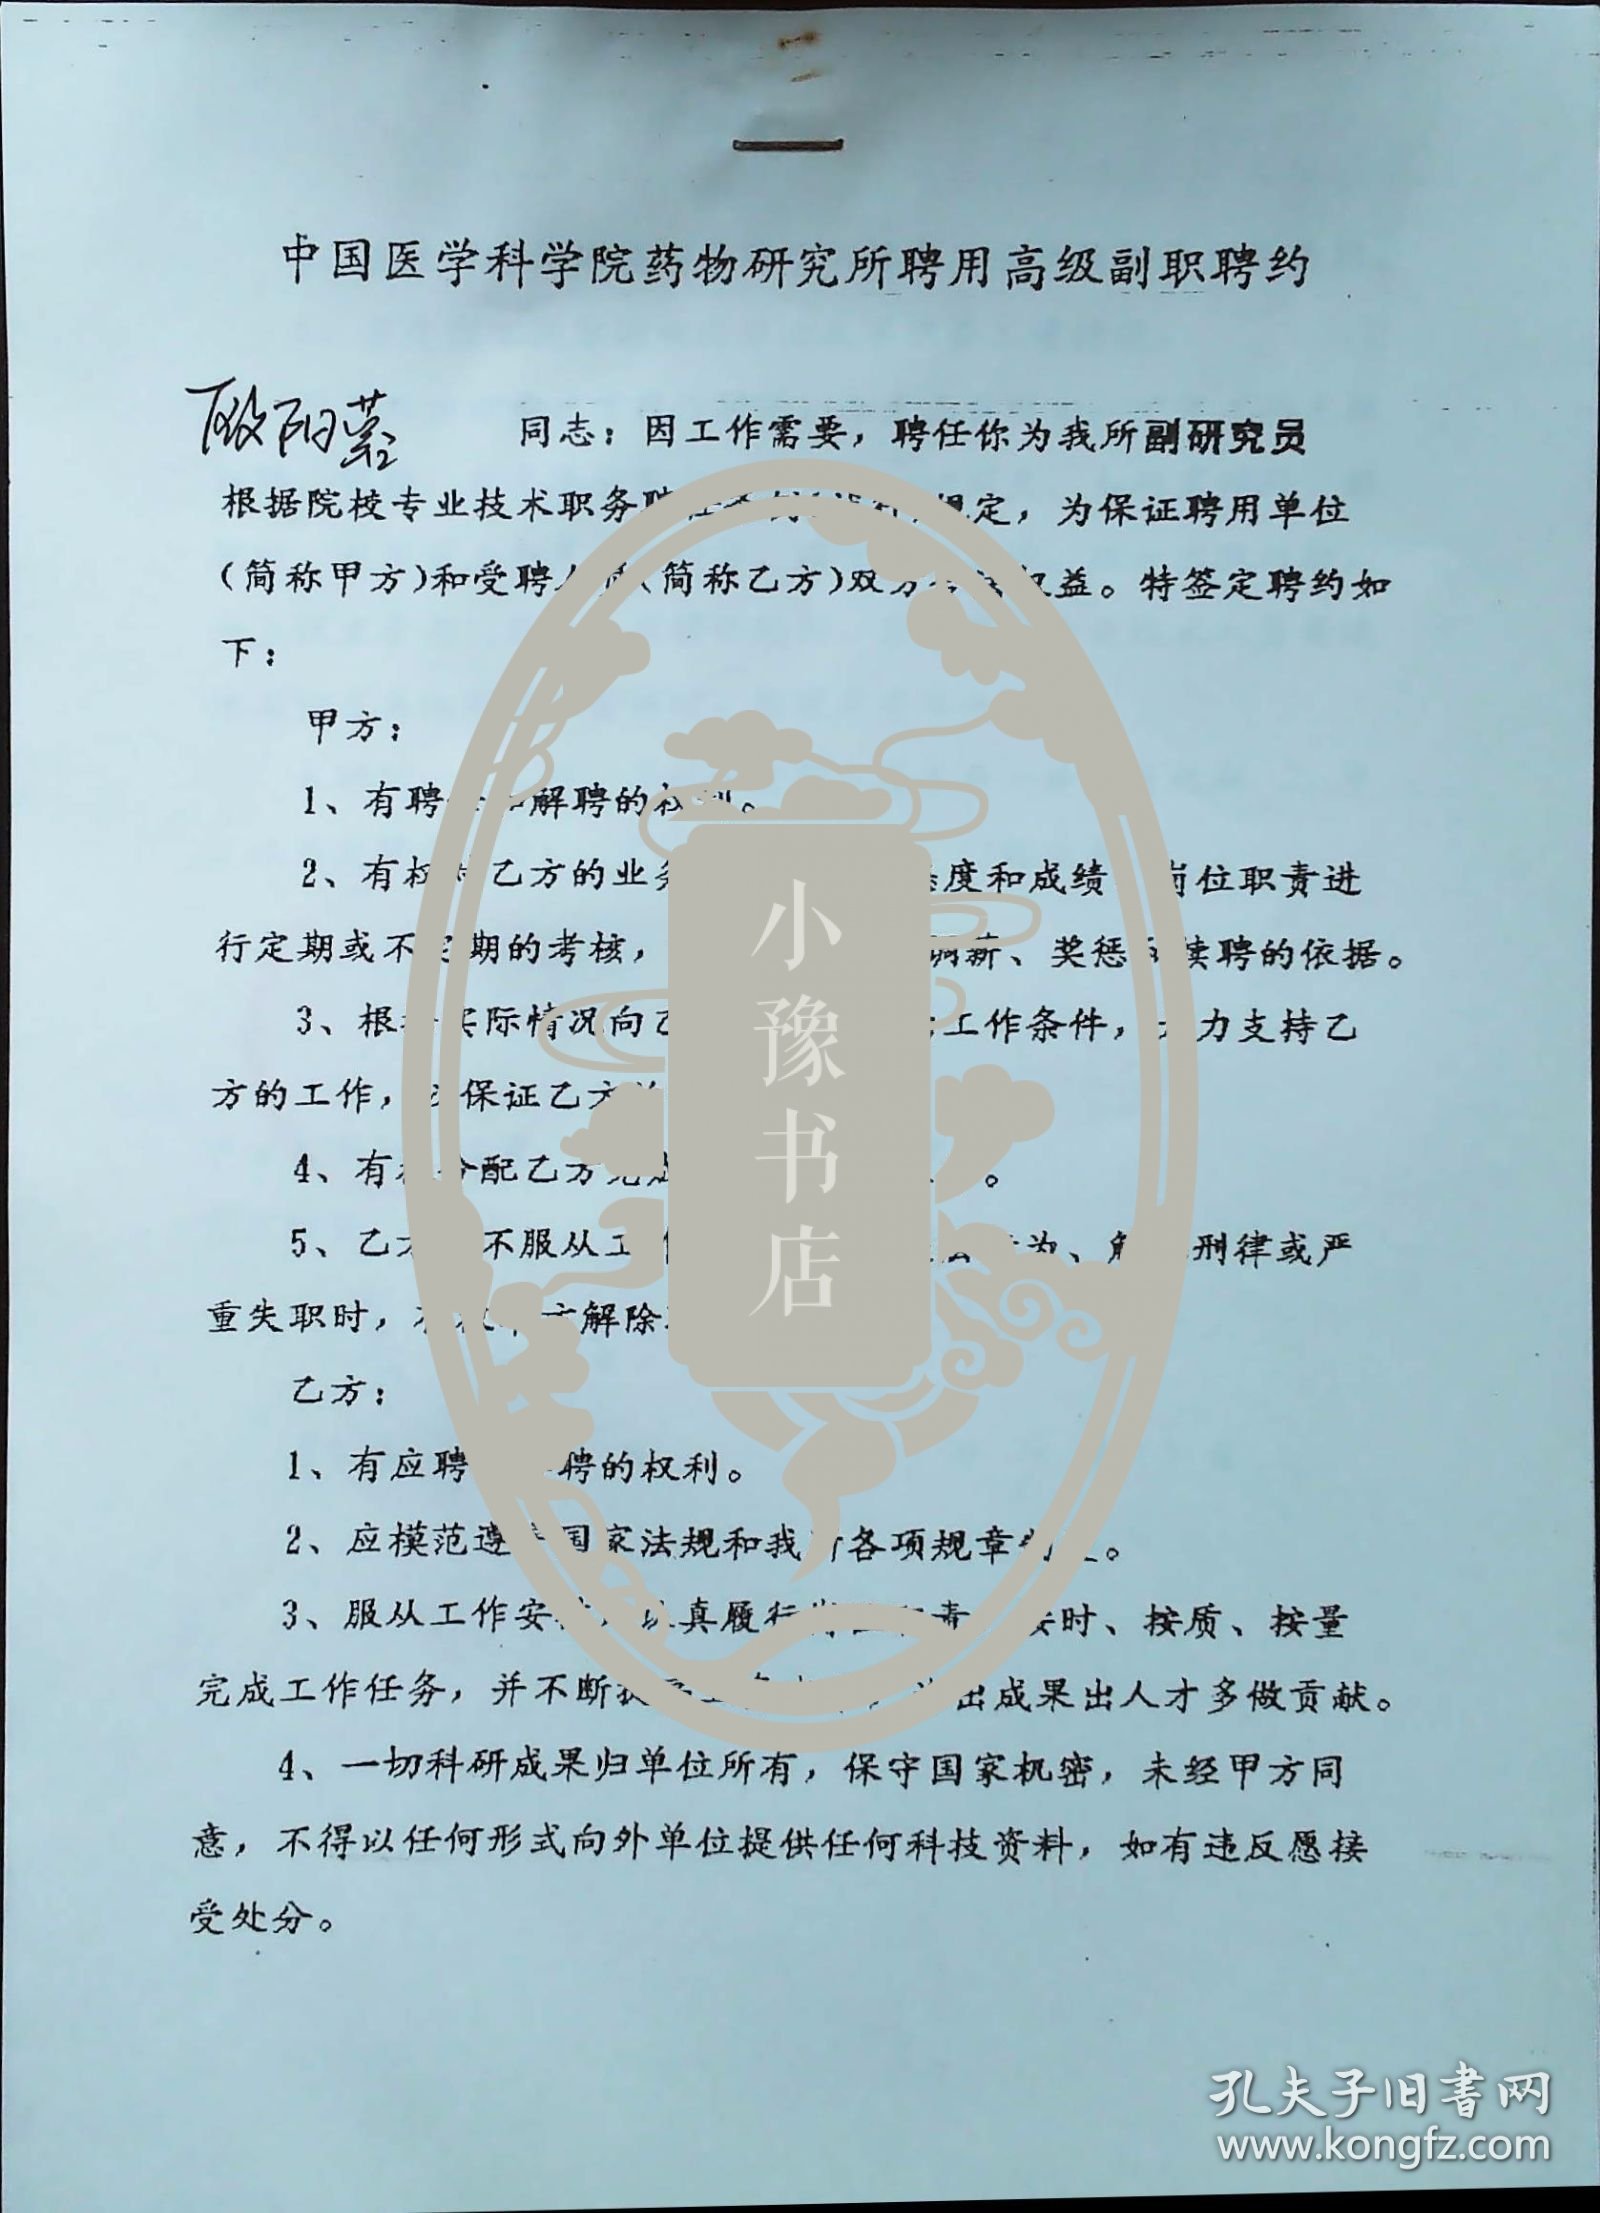 中国医学科学院药物研究所聘用高级副职聘约
欧阳
同志：因工作需要，聘任你为我所副研究员
根据院校专业技术职务聘 规定，为保证聘用单位
(简称甲方)和受聘人员(简称乙方)双方 权益。特签定聘约如
下：
甲方：
1、有聘 解聘的权利。
2、有权对乙方的业务 态度和成绩 岗位职责进
行定期或不定期的考核， 调薪、奖惩 续聘的依据。
3、根据实际情况向乙 工作条件，大力支持乙
方的工作， 保证乙方
4、有权分配乙方完成 。
5、乙方 不服从工作 行为、触 刑律或严
重失职时，有权 解除
乙方：
1、有应聘 聘的权利。
2、应模范遵守国家法规和我所各项规章 。
3、服从工作安排 认真履行岗位职责 按时、按质、按量
完成工作任务，并不断提高 出成果出人才多做贡献。
4、一切科研成果归单位所有，保守国家机密，未经甲方同
意，不得以任何形式向外单位提供任何科技资料，如有违反愿接
受处分。
小豫书店
孔夫子旧书网
www.kongfz.com